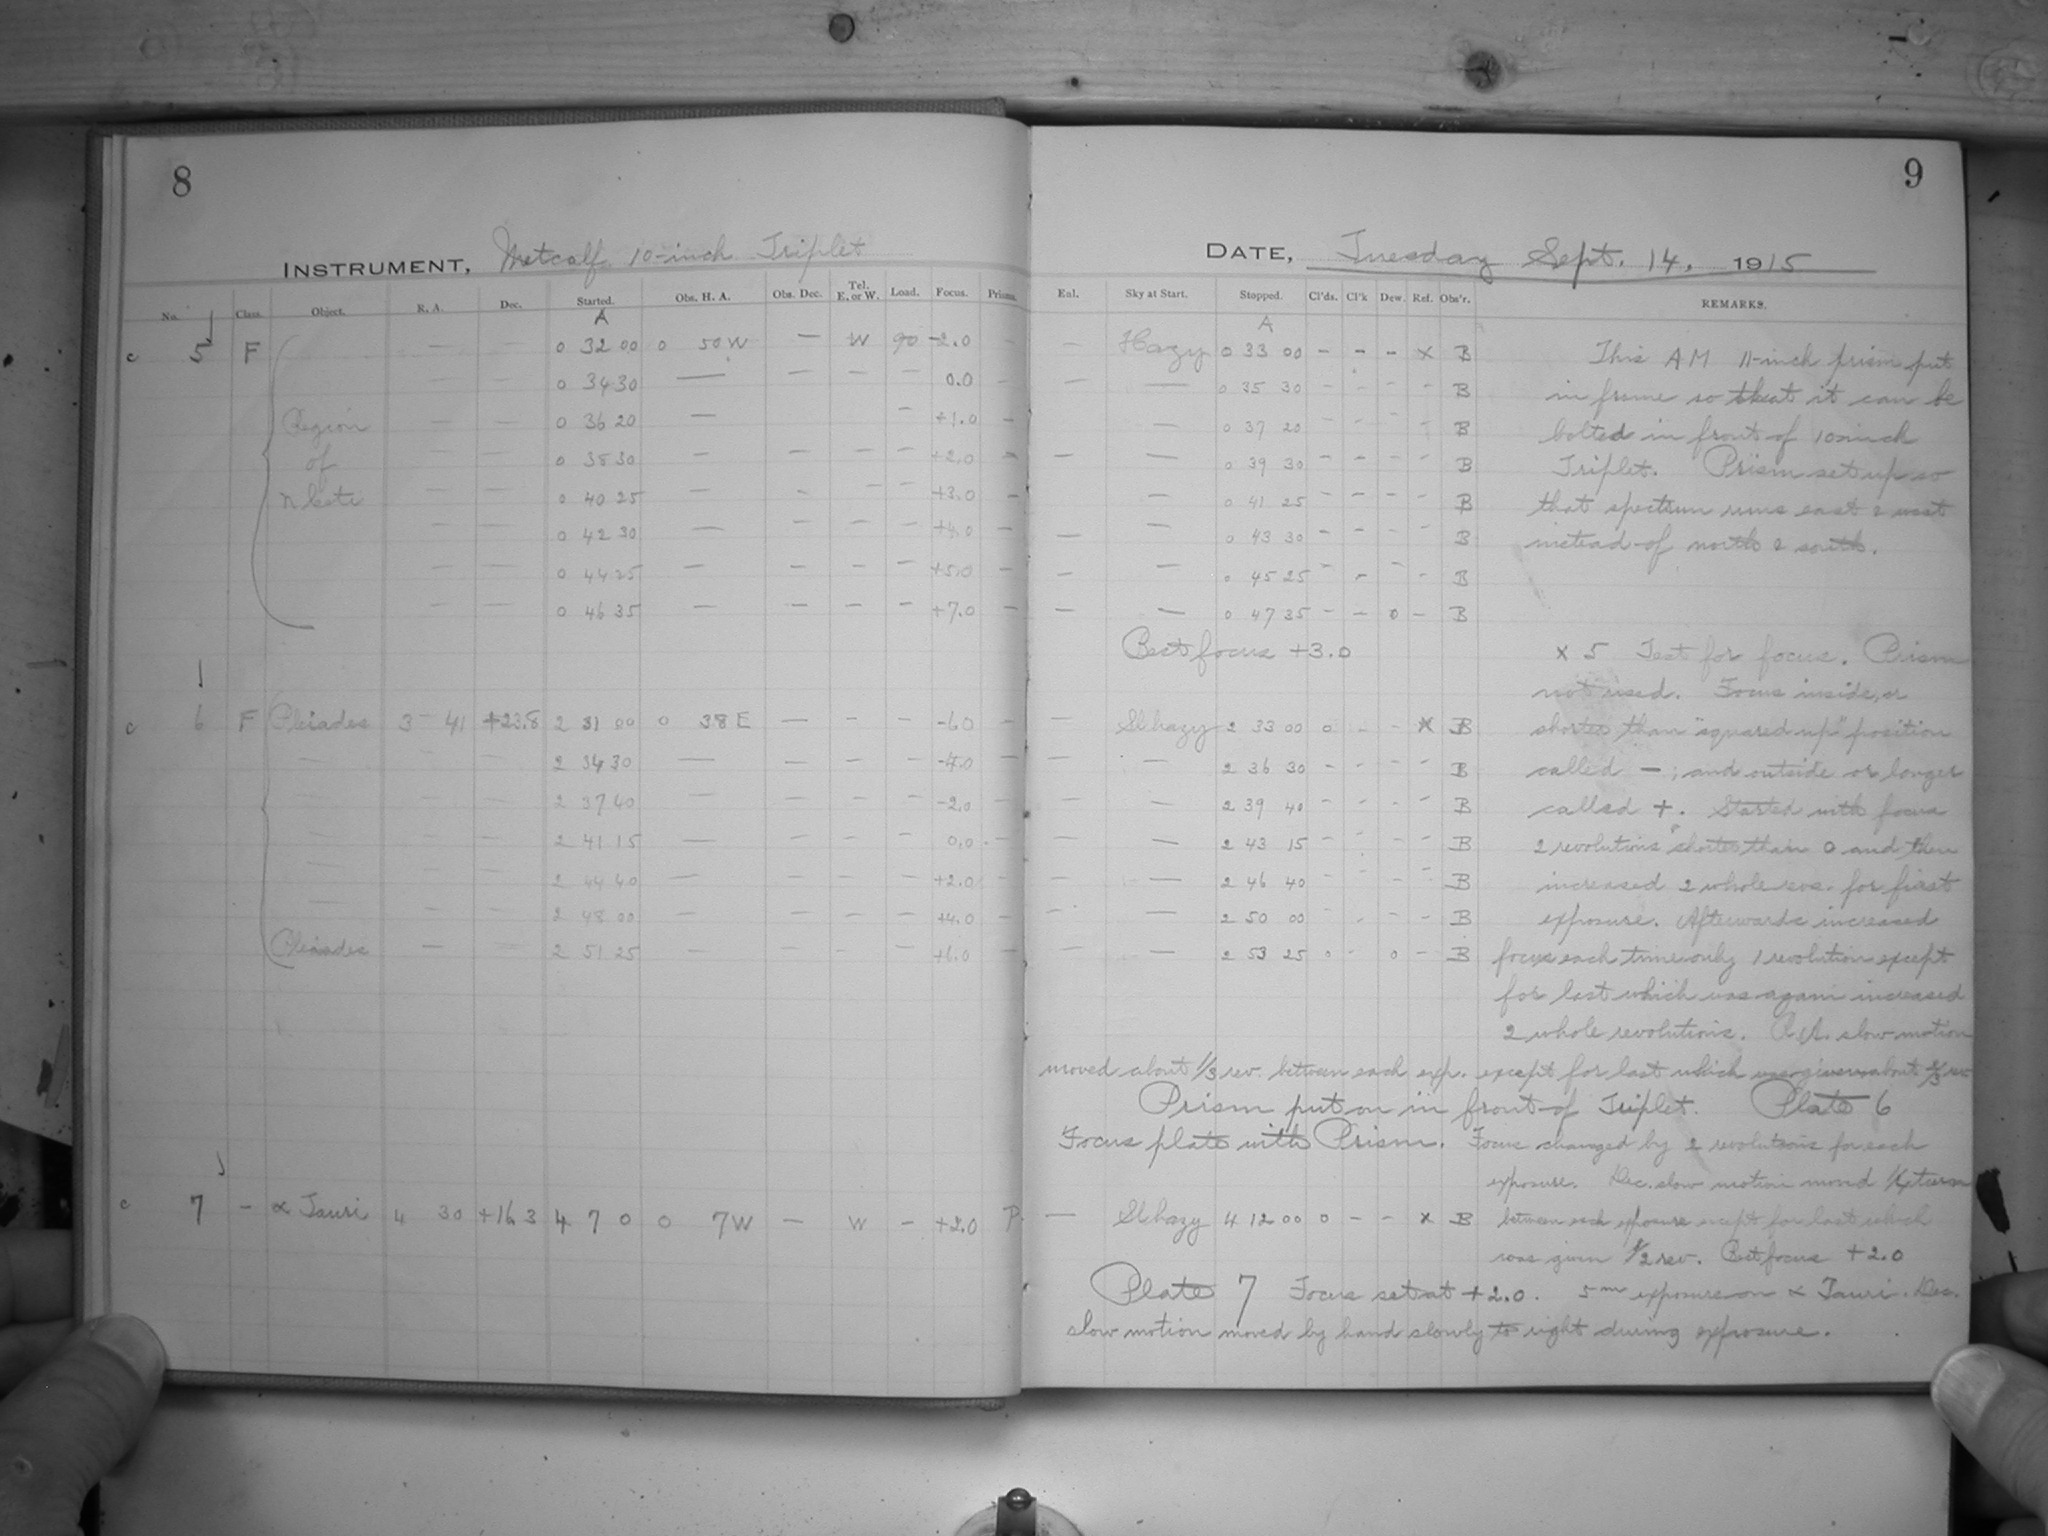 8
INSTRUMENT, Metcalf 10-inch Triplet
No. Class. Object. R. A. Dec. Started. Obs. H. A. Obs. Dec. Tel. E. or W. Load. Focus. Prisms.
A
c 5 F — — 0 32 00 0 50 W — W 90 -2.0 —
— — 0 34 30 — — — — 0.0 —
Region — — 0 36 20 — — +1.0 —
of — — 0 38 30 — — — — +2.0 —
— — 0 40 25 — — — — +3.0 —
— — 0 42 30 — — — — +4.0 —
— — 0 44 25 — — — — +5.0 —
— — 0 46 35 — — — — +7.0 —
c 6 F Pleiades 3 41 +23.8 2 31 00 0 38 E — — — -6.0 —
— — — 2 34 30 — — — — -4.0 —
— — — 2 37 40 — — — — -2.0 —
— — — 2 41 15 — — — — 0.0 —
— — — 2 44 40 — — — — +2.0 —
— — — 2 48 00 — — — — +4.0 —
Pleiades — — 2 51 25 — — — — +6.0 —
c 7 - α Tauri 4 30 +16 3 4 7 0 0 7 W — W — +2.0 P
9
DATE, Tuesday Sept. 14, 1915
Eul. Sky at Start. Stopped. Cl'ds. Cl'k Dew. Ref. Obs'r. REMARKS.
A
— Hazy 0 33 00 - - - x B This AM 11-inch prism put
— — 0 35 30 - - - - B in frame so that it can be
— 0 37 20 - - - B bolted in front of 10-inch
— — 0 39 30 - - - - B Triplet. Prism set up so
— 0 41 25 - - - - B that spectrum runs east & west
— — 0 43 30 - - - - B instead of north & south.
— — 0 45 25 - - - - B
— — 0 47 35 - - 0 - B
Best focus +3.0 x 5 Test for focus. Prism
not used. Focus inside, or
— Sl hazy 2 33 00 0 - - x B shorter than "squared up" position
— — 2 36 30 - - - - B called —; and outside or longer
— — 2 39 40 - - - - B called +. Started with focus
— — 2 43 15 - - - - B 2 revolutions shorter than 0 and then
— — 2 46 40 - - - - B increased 2 whole revs. for first
— — 2 50 00 - - - - B exposure. Afterwards increased
— — 2 53 25 0 - 0 - B focus each time only 1 revolution except
for last which was again increased
2 whole revolutions. R.A. slow motion
moved about 1/3 rev. between each exp. except for last which was given about 2/3 rev
Prism put on in front of Triplet. Plate 6
Focus plate with Prism. Focus changed by 2 revolutions for each
exposure. Dec. slow motion moved 1/4 turn
— Sl hazy 4 12 00 0 - - x B between each exposure except for last which
was given 1/2 rev. Best focus +2.0
Plate 7 Focus set at +2.0. 5m exposure on α Tauri. Dec.
slow motion moved by hand slowly to right during exposure.